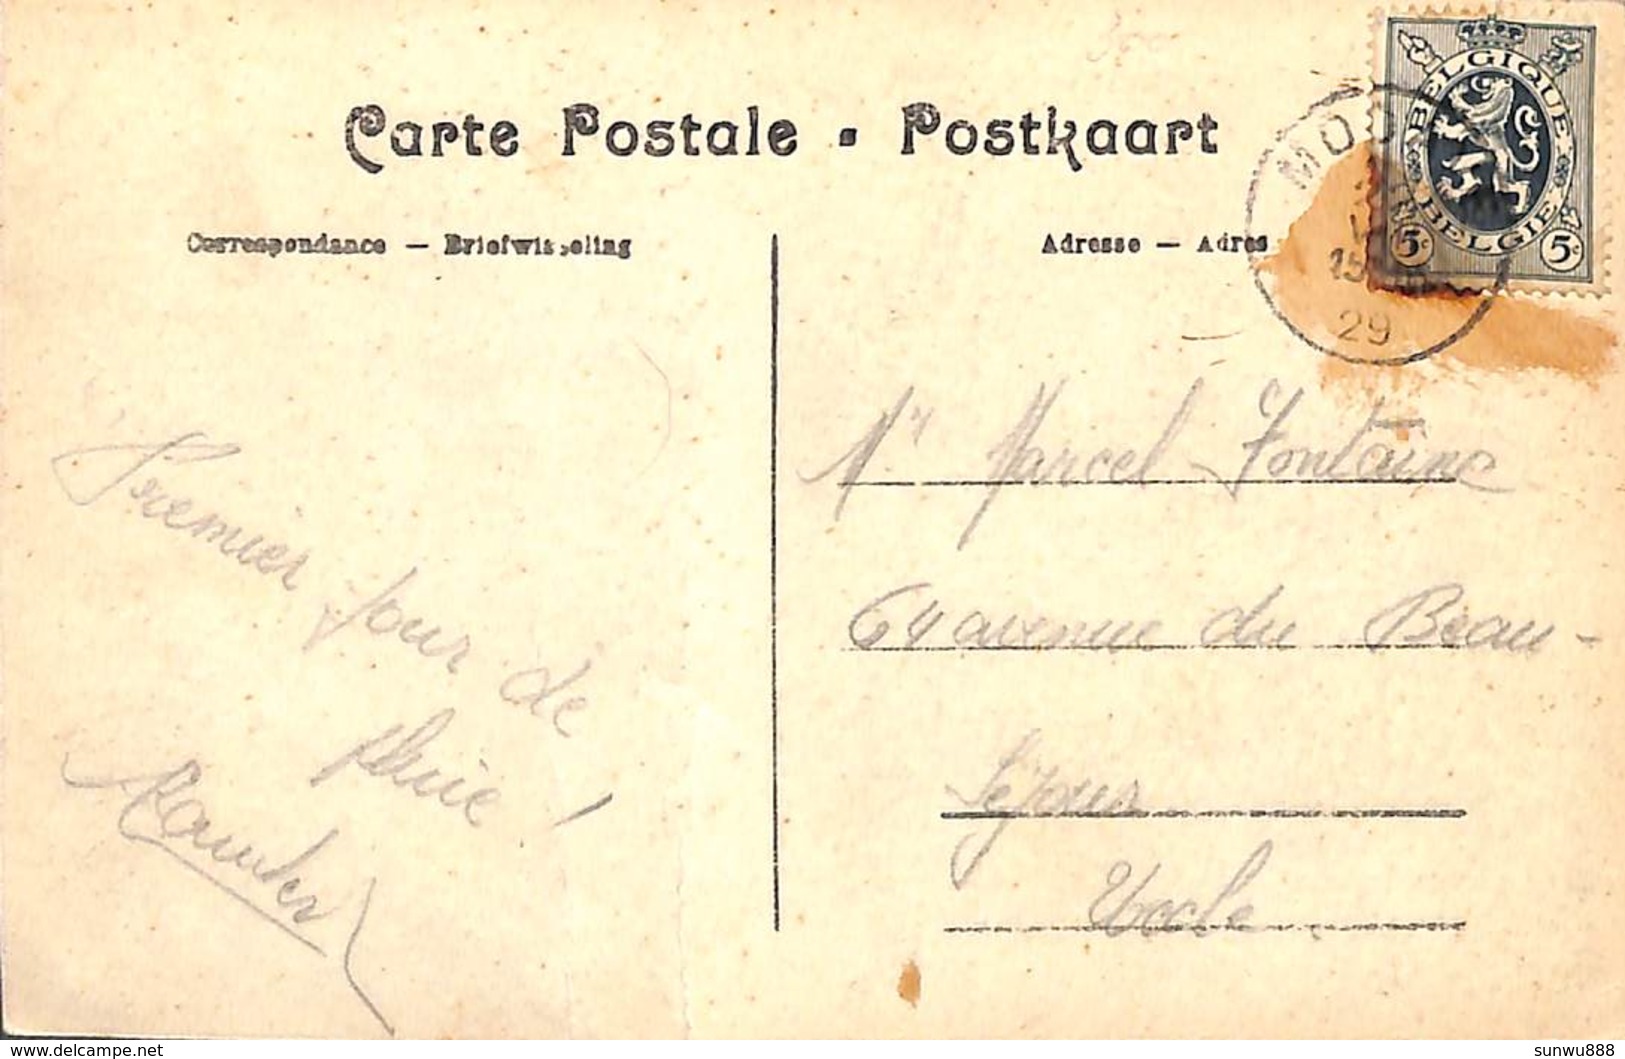 Carte Postale - Postkaart
Correspondance — Briefwisseling
Adresse — Adres
BELGIQUE
BELGIE
5c 5c
29
Premier jour de
pluie !
Mr Marcel Fontaine
64 avenue du Beau-
Séjour
Uccle
delcampe.net
sunwu888